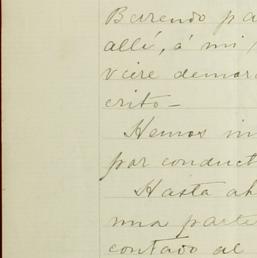 Barendo pa
allé, á mi
viere demor
crito—
Hemos in
por conduct
Hasta ah
una parte
contado al